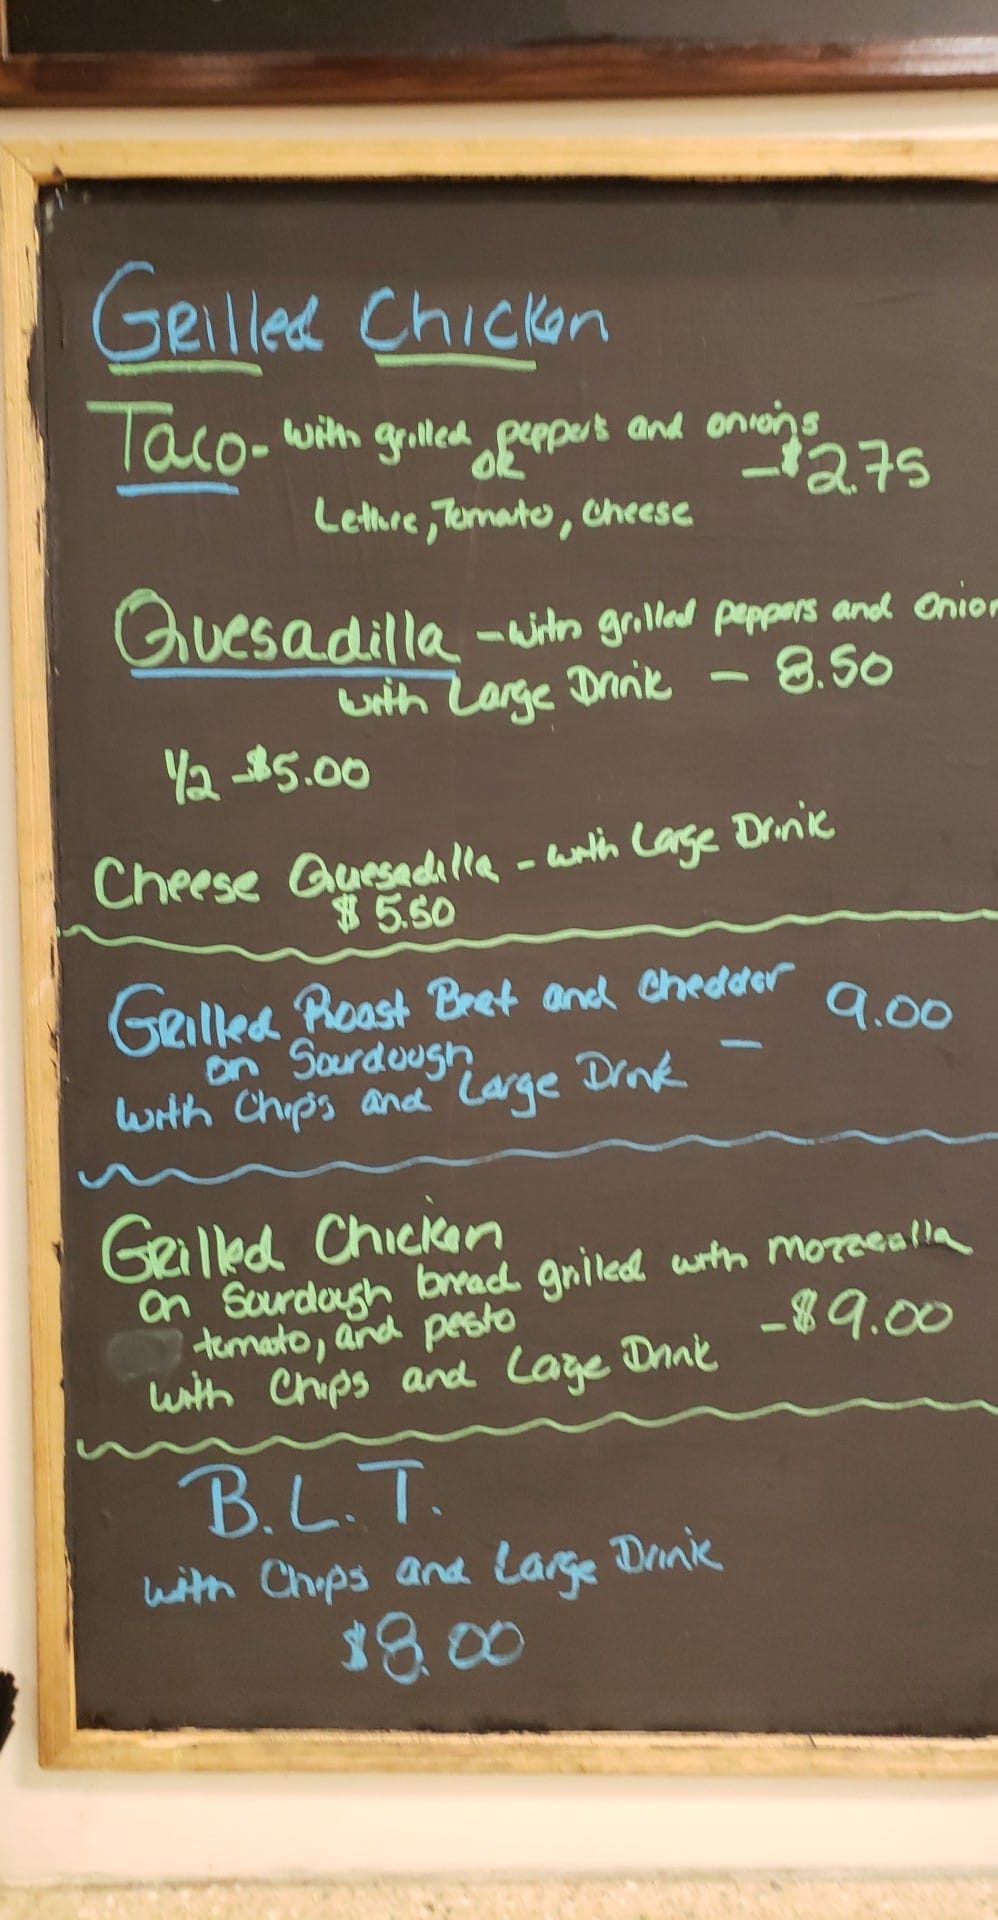 Grilled Chicken
Taco - with grilled peppers and onions
or - $2.75
Lettuce, Tomato, Cheese
Quesadilla - with grilled peppers and onion
with Large Drink - 8.50
1/2 - $5.00
Cheese Quesadilla - with Large Drink
$5.50
Grilled Roast Beef and Cheddar 9.00
on Sourdough -
with Chips and Large Drink
Grilled Chicken
on Sourdough bread grilled with mozzeralla
tomato, and pesto - $9.00
with Chips and Large Drink
B.L.T.
with Chips and Large Drink
$8.00